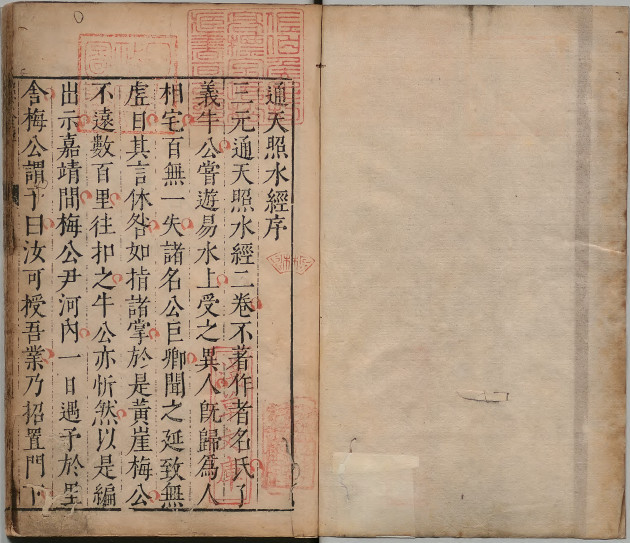 通天照水經序
三元通天照水經二卷不著作者名氏了
義牛公嘗遊易水上受之異人旣歸為人
相宅百無一失諸名公巨卿聞之延致無
虛日其言休咎如指諸掌於是黃崖梅公
不遠數百里往扣之牛公亦忻然以是編
出示嘉靖間梅公尹河內一日遇予於星
舍梅公謂予曰汝可授吾業乃招置門下